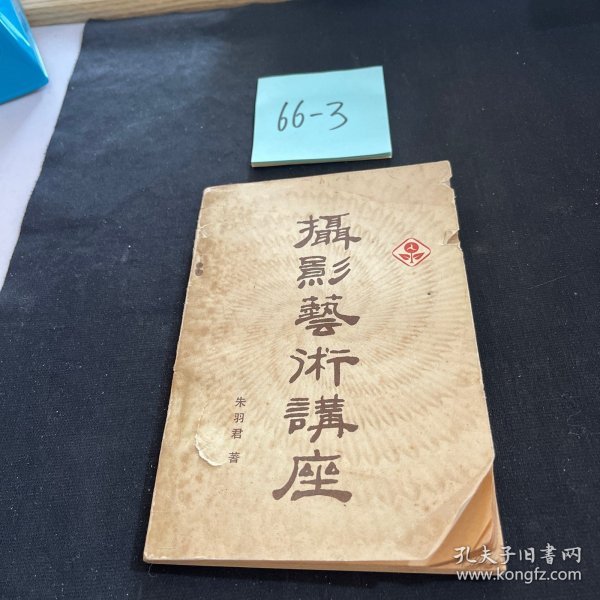 66-3
攝影藝術講座
朱羽君 著
孔夫子旧書网
www.kongfz.com